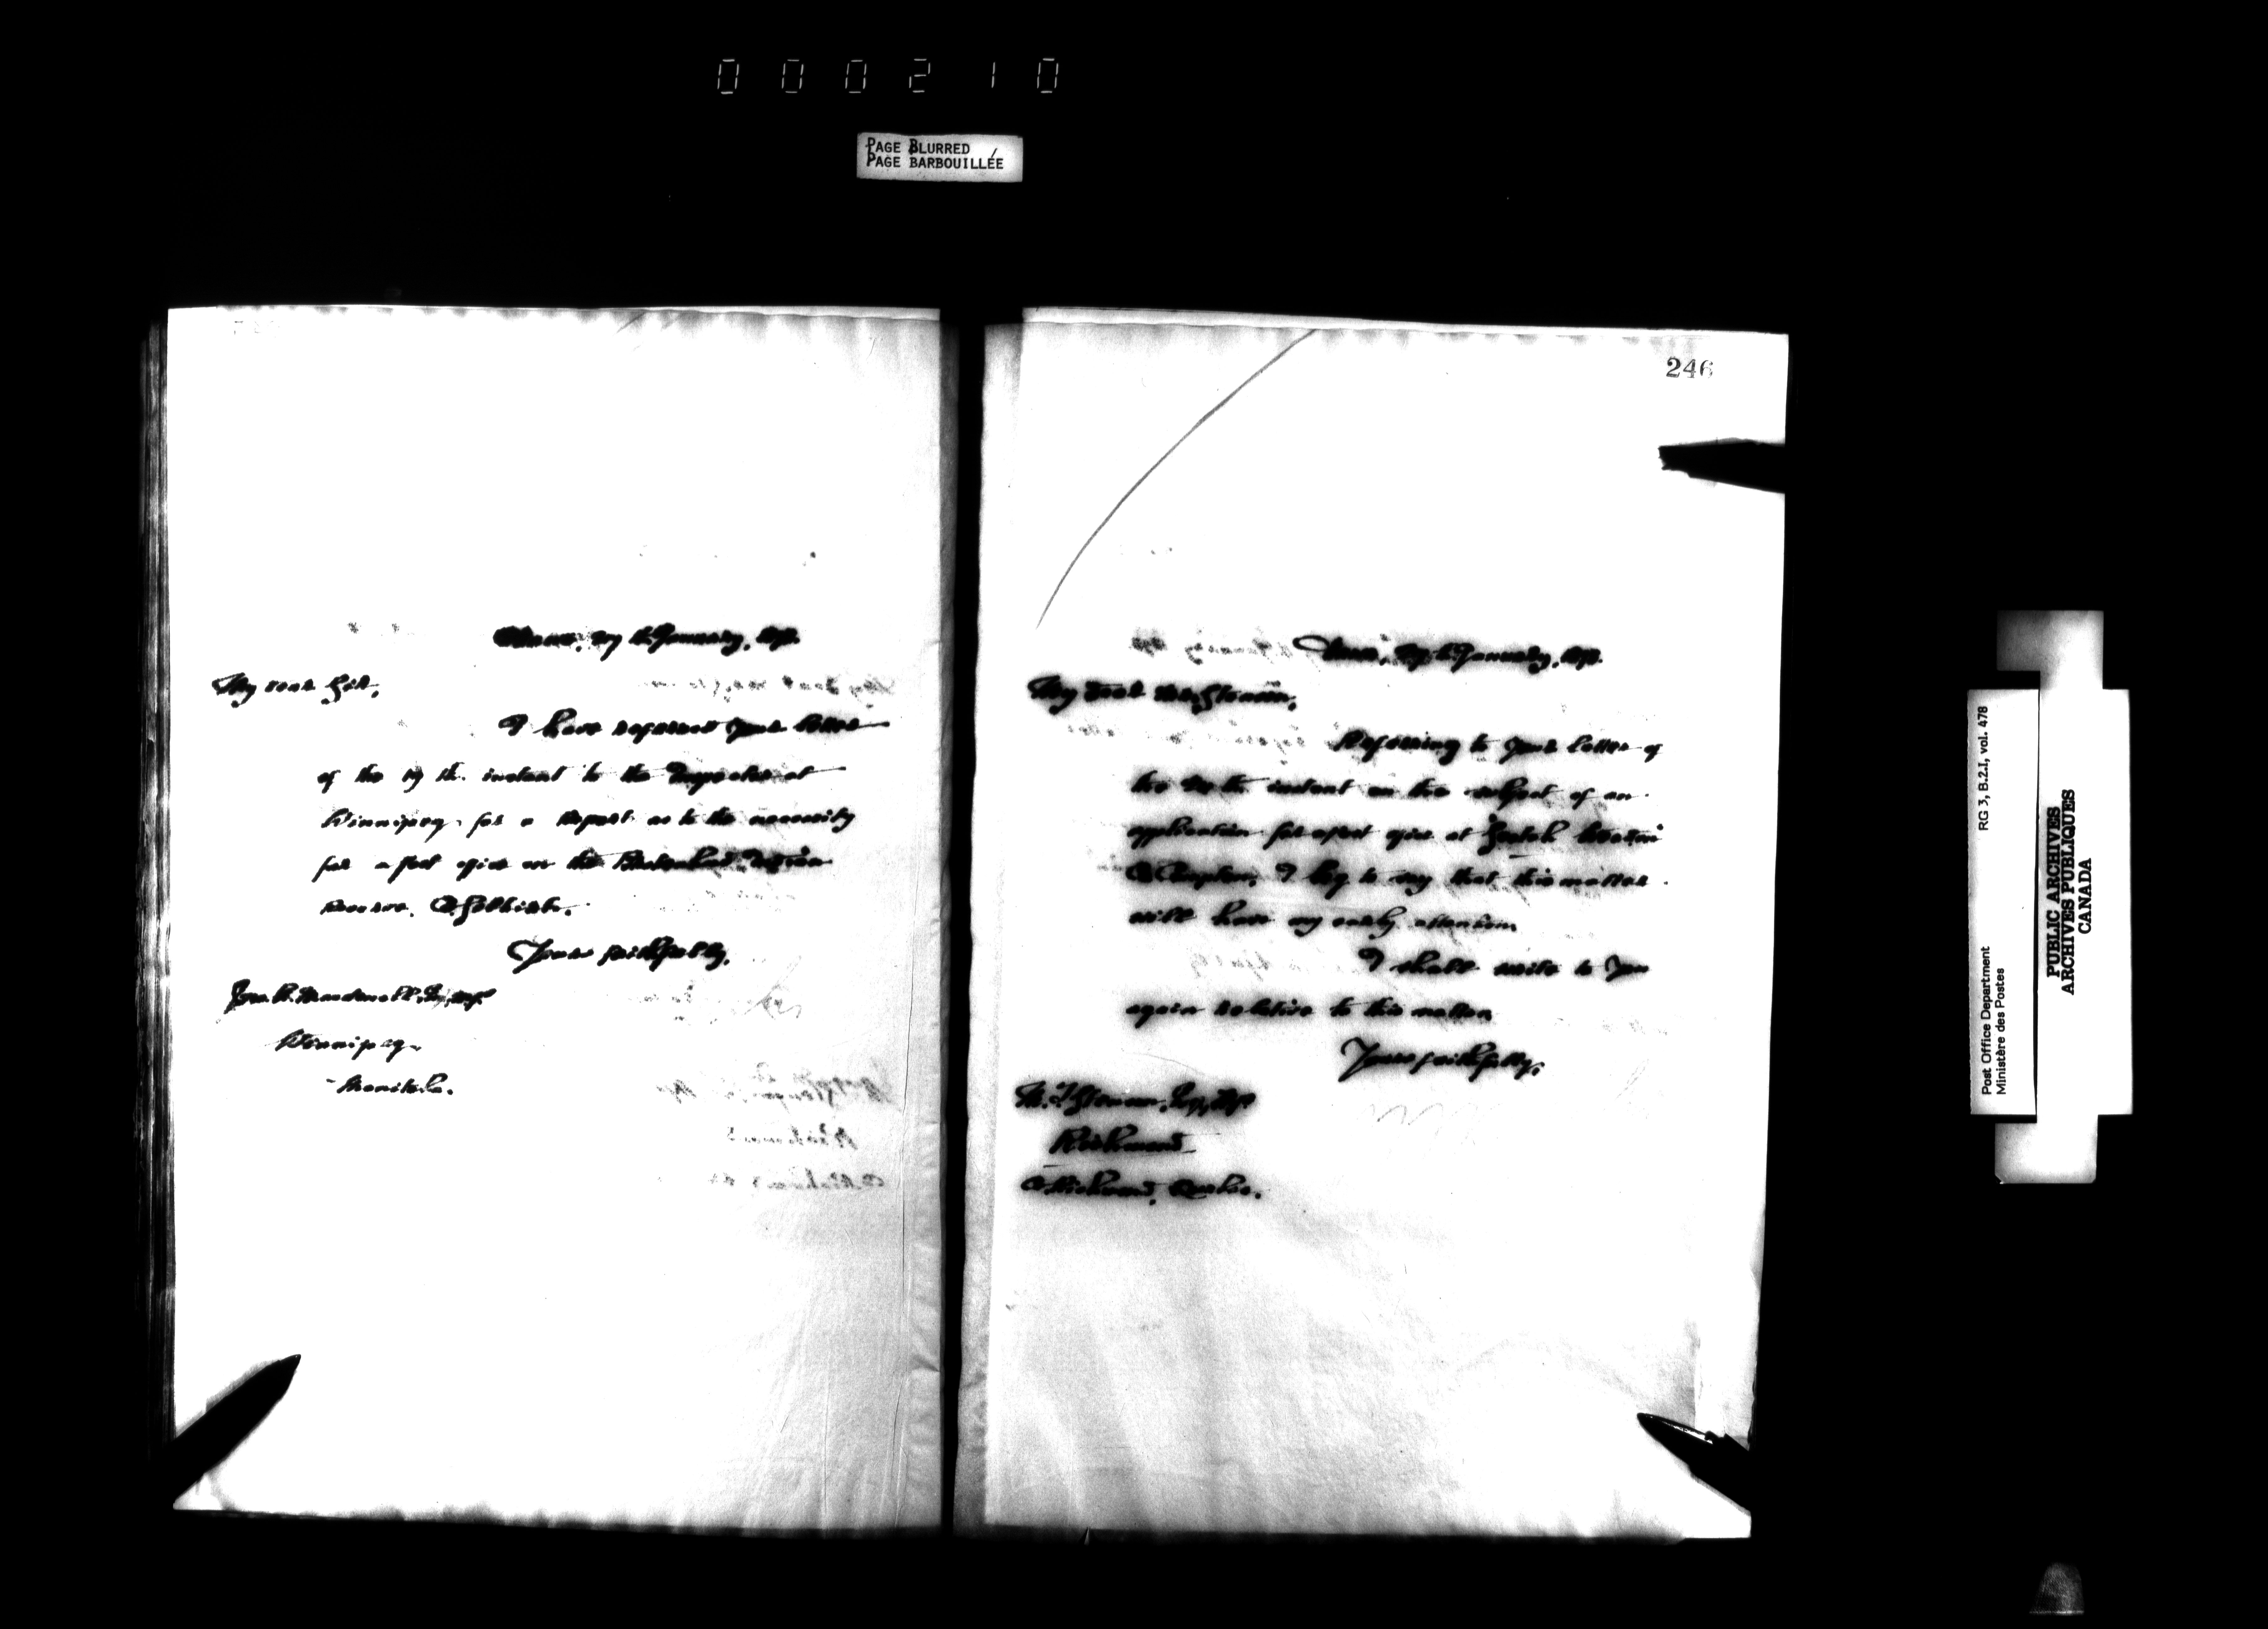 000210
PAGE BLURRED
PAGE BARBOUILLÉE
Ottawa, 27 th January,
My dear Sir,
I have referred your letter
of the 19 th. instant to the Inspector at
Winnipeg for a Report as to the necessity
for a post office on the Indian
Reserve, Selkirk.
Yours faithfully,
Esq., M.P.
Winnipeg
Manitoba.
246
January,
My dear Mr.
Referring to your letter of
the instant on the subject of an
application for a post office at
Compton, I beg to say that this matter
will have my early attention.
I shall write to you
again relative to this matter.
Yours faithfully,
Esq., M.P.
Richmond
Richmond, Quebec.
Post Office Department RG 3, B.2.I, vol. 478
Ministère des Postes
PUBLIC ARCHIVES
ARCHIVES PUBLIQUES
CANADA